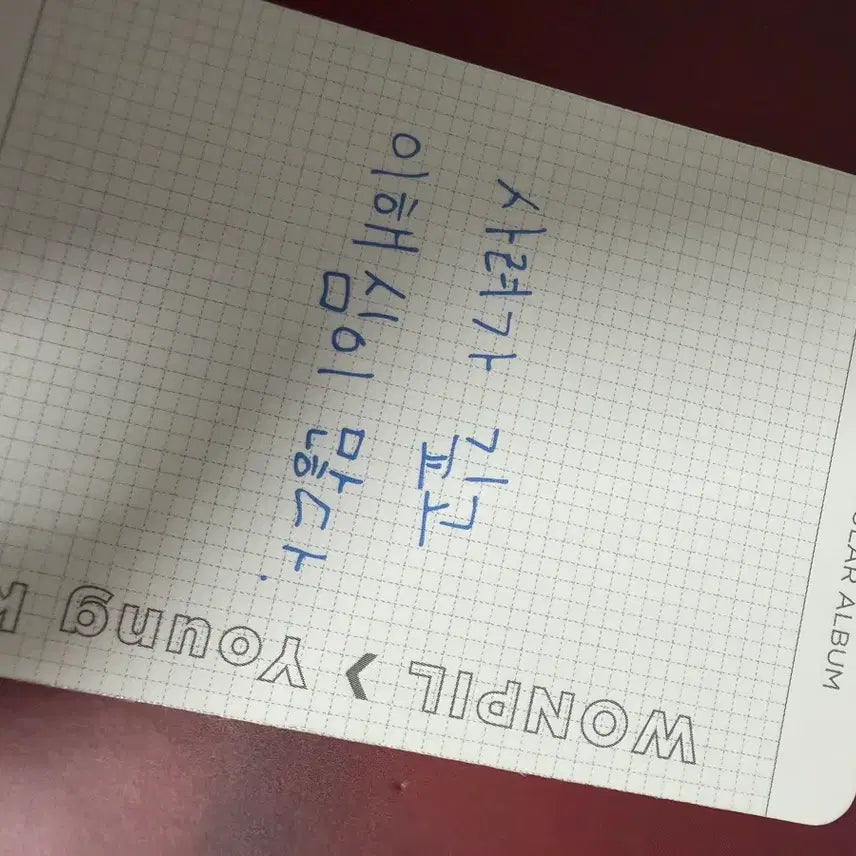 사려가 깊고
이해심이 많다.
WONPIL > Young K
ULAR ALBUM